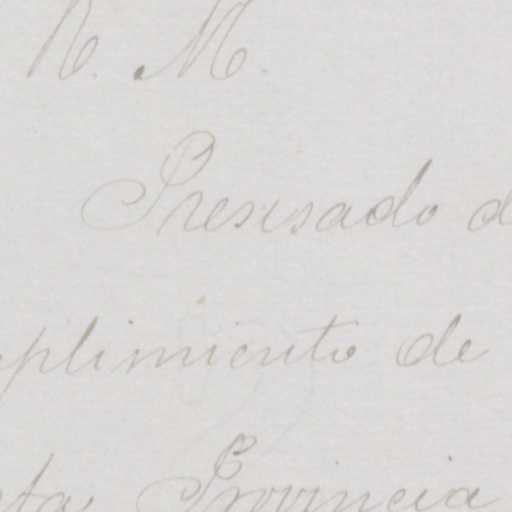 R. M.
Presisado d
plimiento de
ta Provincia